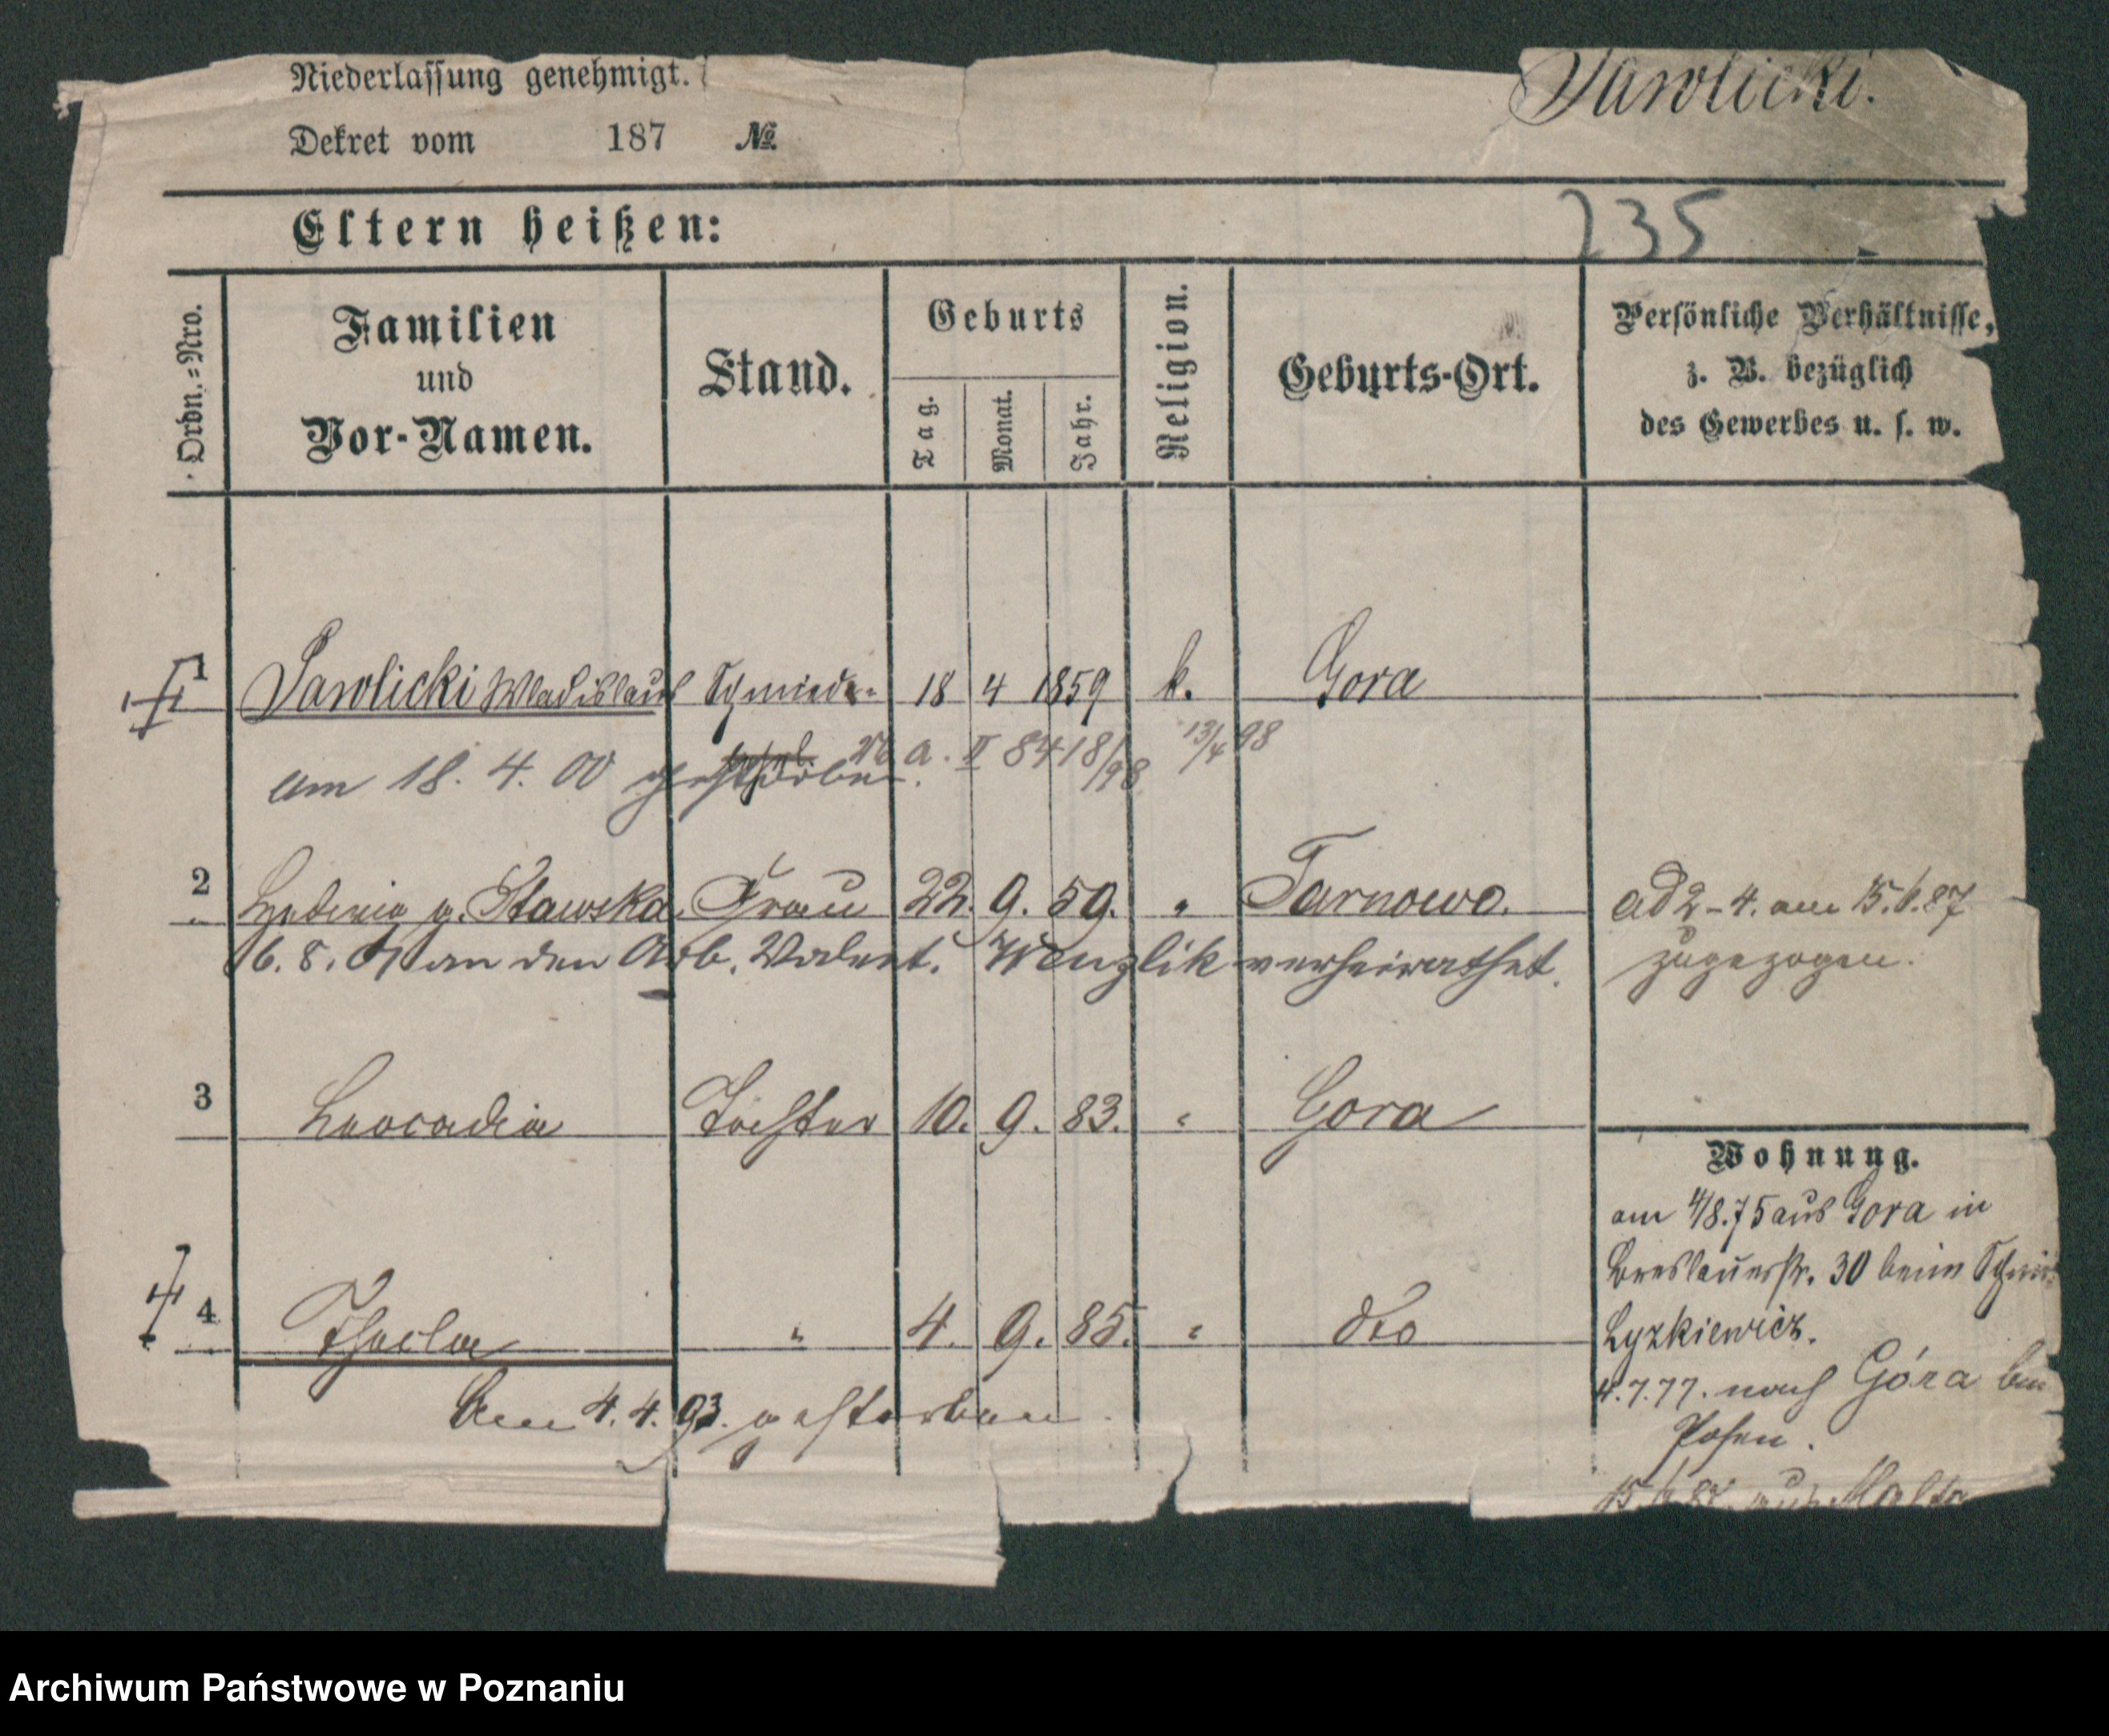 Niederlassung genehmigt.
Pawlicki.
Dekret vom 187 No.
Eltern heißen:
235
Ordn.=Nro.
Familien und Vor-Namen.
Stand.
Geburts
Tag. Monat. Jahr.
Religion.
Geburts-Ort.
Persönliche Verhältnisse,
z. B. bezüglich
des Gewerbes u. s. w.
1 Pawlicki Wladislaus Schmiede= 18 4 1859 k. Gora
a. II 8418/98 13/4 98
am 18. 4. 00 gestorben.
2 Hedwig g. Stawska. Frau 22. 9. 59. " Tarnowo.
ad 2-4. am 15. 6. 87
zugezogen.
6. 8. 01 an den Arb. Valent. Wenzlik verheirathet.
3 Leocadia Tochter 10. 9. 83. " Gora
Wohnung.
am 4/8.75 aus Gora in
Breslauerstr. 30 beim
Lyzkiewicz.
4 Thecla " 4. 9. 85. " dto
4.7.77. nach Góra bei
Posen.
Am 4. 4. 93. gestorben.
Archiwum Państwowe w Poznaniu